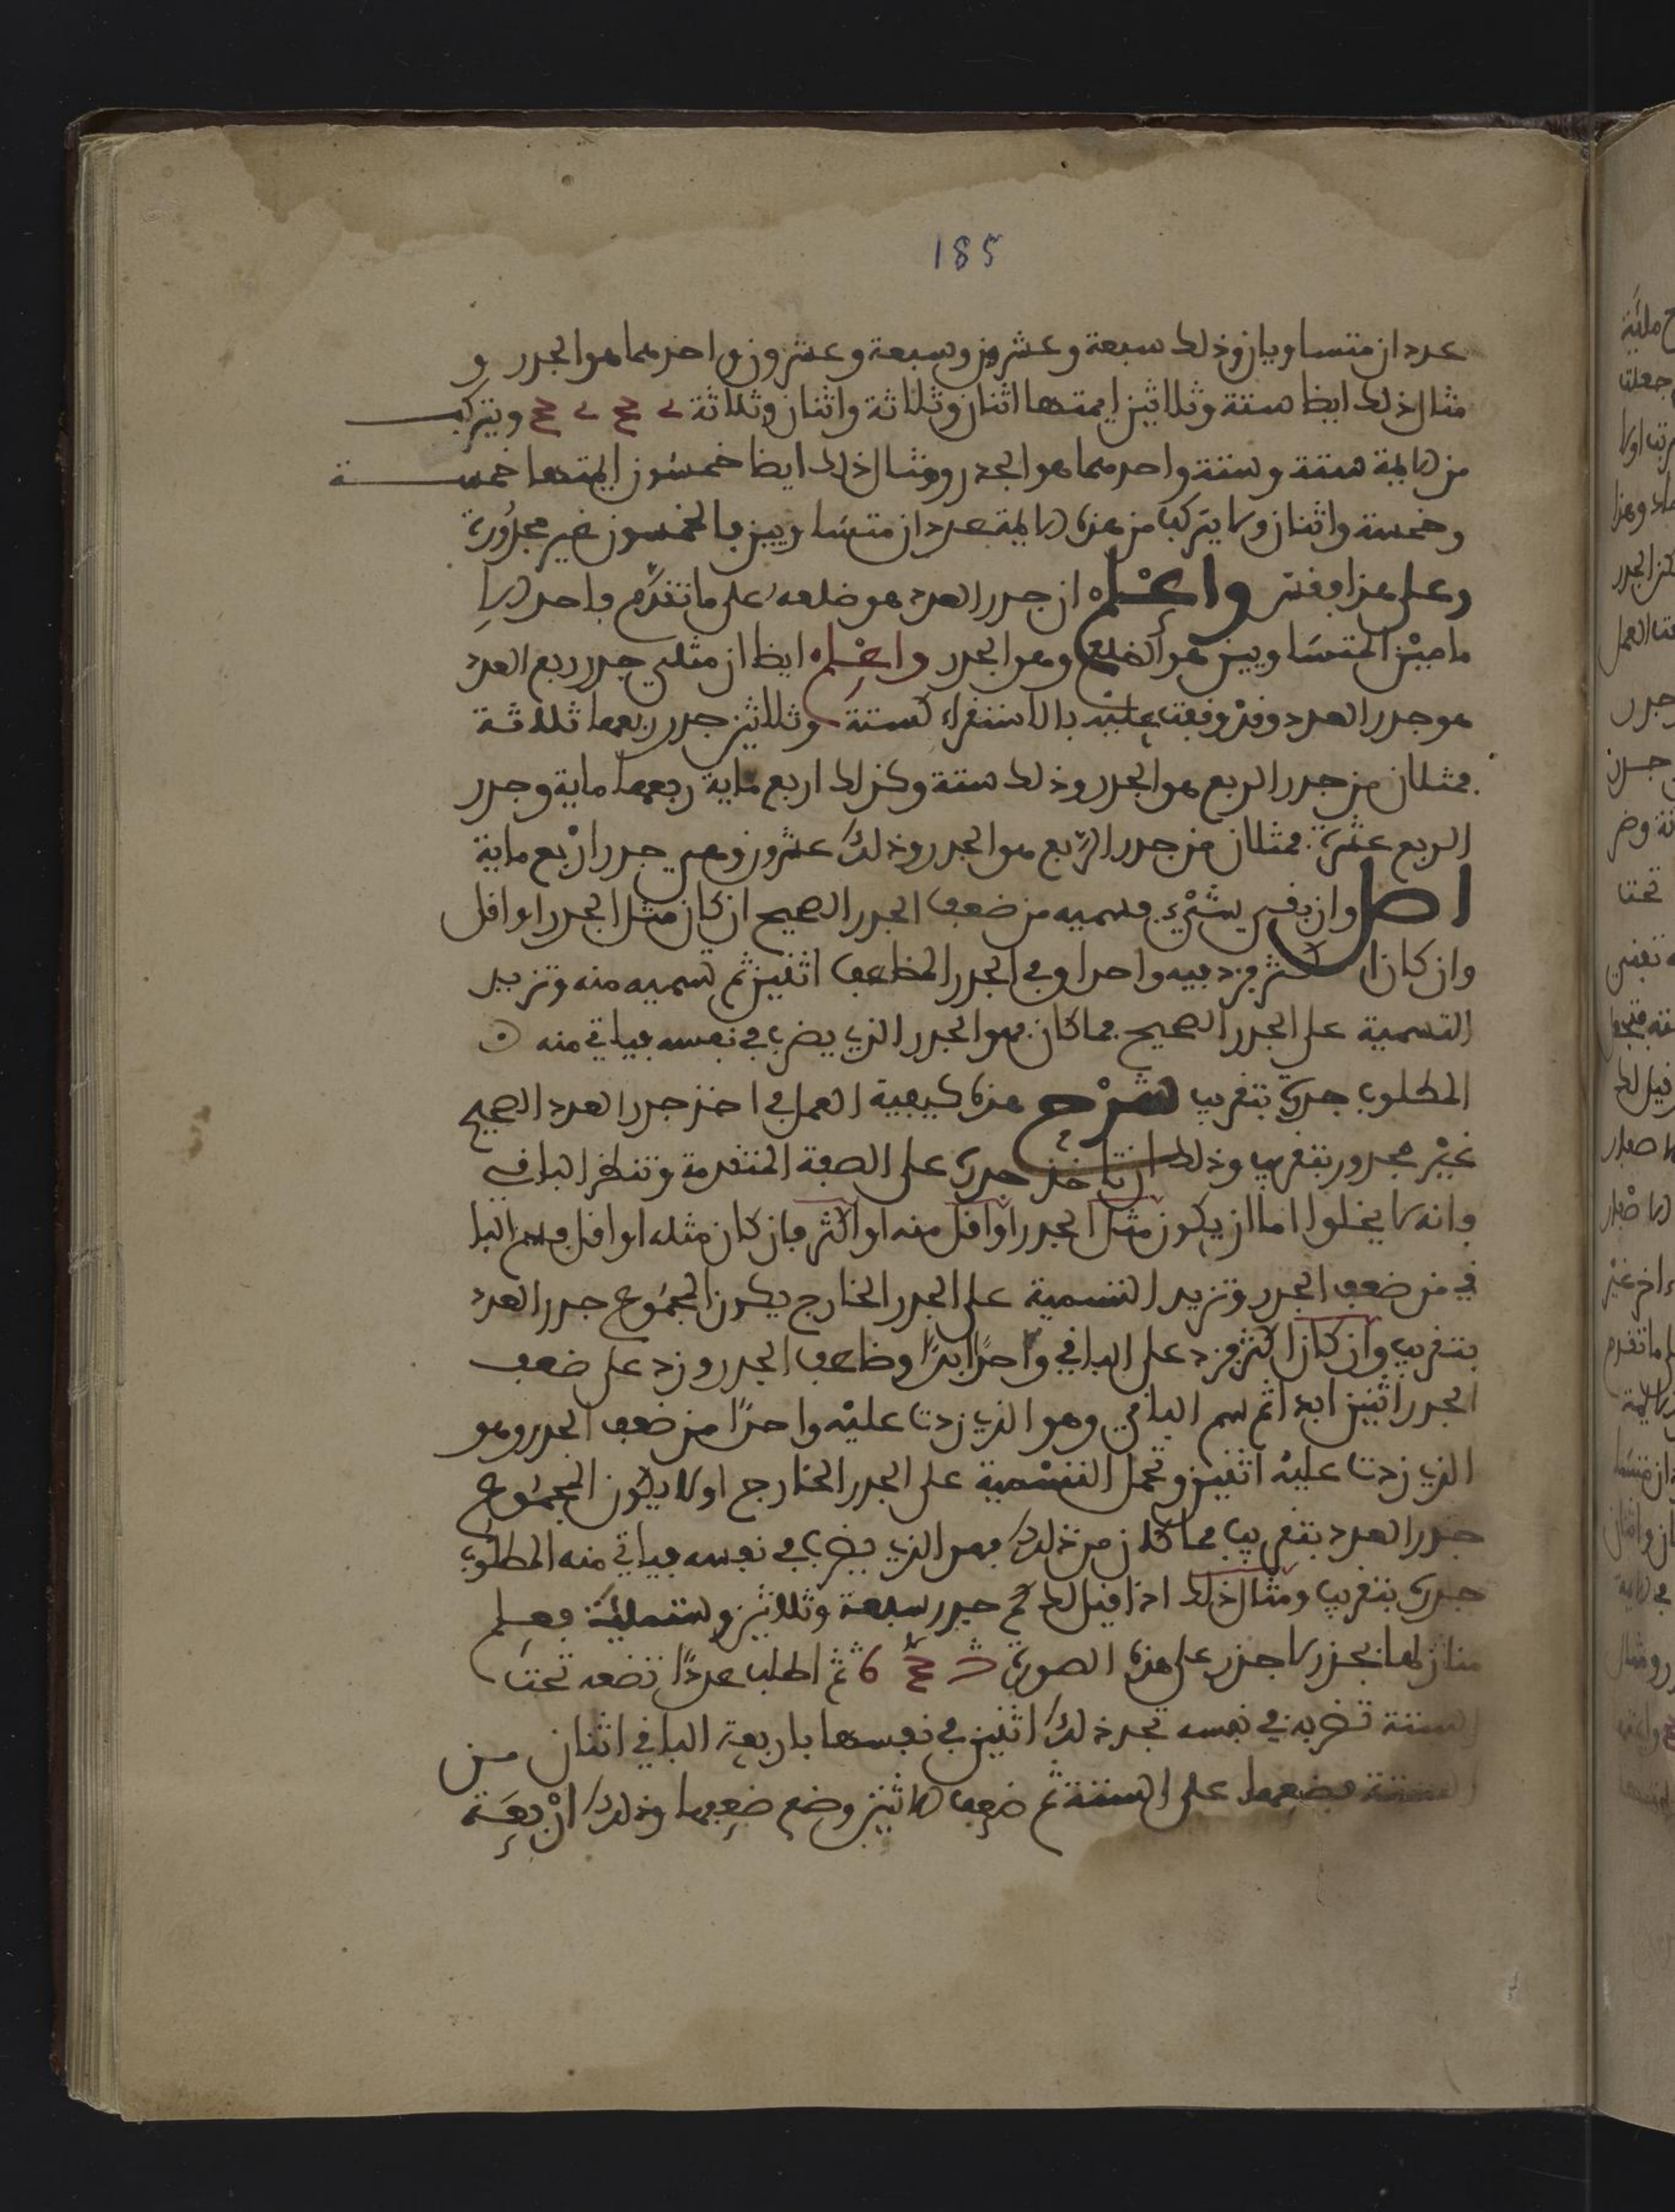 185
عددان متساويان وذلك سبعة وعشرون وسبعة وعشرون واحدهما هو الجدر و
مثال ذلك ايضا ستة وثلاثين ايمتها اثنان وثلاثة واثنان وثلاثة ويتركب
من الايمة ستة وستة واحدهما هو الجدر ومثال ذلك ايضا خمسون ايمتها خمسة
وخمسة واثنان ولا يتركب من هذه الايمة عددان متساويين فالخمسون غير مجدورة
وعلى هذا فقس واعلم ان جدر العدد هو ضلعه على ما تقدم فاحد الا
مامين المتساويين هو الضلع وهو الجدر واعلم ايضا ان مثلي جدر ربع العدد
هو جدر العدد وقد وقفت عليه بالاستقراء كستة وثلاثين جدر ربعها ثلاثة
فمثلان من جدر الربع هو الجدر وذلك ستة وكذلك اربع ماية ربعها ماية وجدر
الربع عشرة فمثلان من جدر الربع هو الجدر وذلك عشرون وهي جدر اربع ماية
اصل وان بقي شيء فسميه من ضعف الجدر الصحيح ان كان مثل الجدر او اقل
وان كان اكثر فزد فيه واحدا وفي الجدر المضاعف اثنين ثم تسميه منه وتزيد
التسمية على الجدر الصحيح فما كان فهو الجدر الذي يضرب في نفسه فياتي منه
المطلوب جدره بتقريب شرح هذه كيفية العمل في اخذ جدر العدد الصحيح
غير مجدور بتقريب وذلك ان تاخذ جدره على الصفة المتقدمة وتنظر الباقي
فانه لا يخلوا اما ان يكون مثل الجدر او اقل منه او اكثر فان كان مثله او اقل فسم البا
قي من ضعف الجدر وتزيد التسمية على الجدر الخارج يكون المجموع جدر العدد
بتقريب وان كان اكثر فزد على الباقي واحدا ابدا وضاعف الجدر وزد على ضعف
الجدر اثنين ابدا ثم سم الباقي وهو الذي زدت عليه واحدا من ضعف الجدر وهو
الذي زدت عليه اثنين وتحمل التسمية على الجدر الخارج اولا يكون المجموع
جدر العدد بتقريب فما كان من ذلك فهو الذي يضرب في نفسه فياتي منه المطلوب
جدره بتقريب ومثال ذلك اذا قيل لك كم جدر سبعة وثلاثين وستماية فعلم
منازلها بجذر لا جذر على هذه الصورة 6 ثم اطلب عددا تضعه تحت
الستة تضربه في نفسه تجد ذلك اثنين في نفسها باربعة الباقي اثنان من
الستة فضعها على الستة ثم ضعف الاثنين وضع ضعفها وذلك اربعة